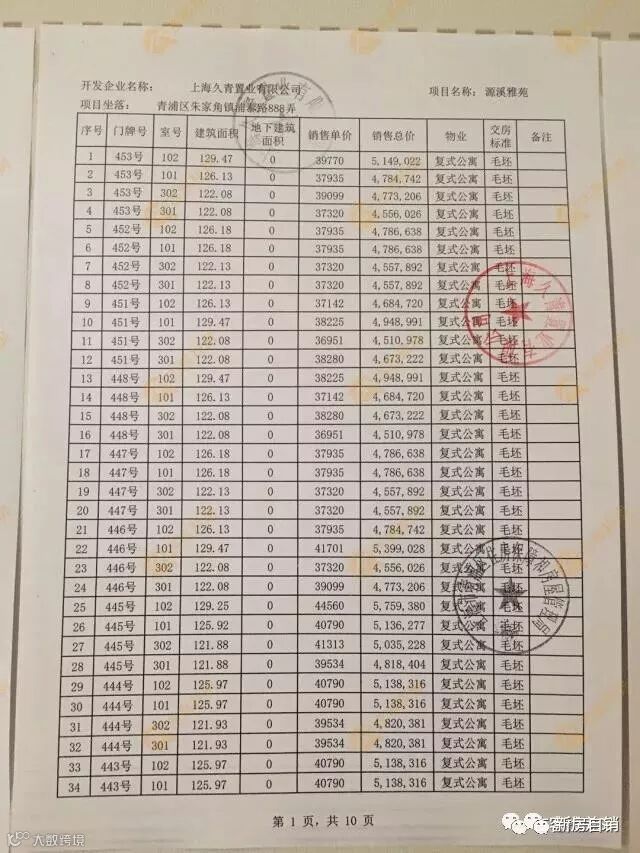 开发企业名称： 上海久青置业有限公司 项目名称：源溪雅苑
项目坐落： 青浦区朱家角镇浦泰路888弄
序号 门牌号 室号 建筑面积 地下建筑面积 销售单价 销售总价 物业 交房标准 备注
1 453号 102 129.47 0 39770 5,149,022 复式公寓 毛坯
2 453号 101 126.13 0 37935 4,784,742 复式公寓 毛坯
3 453号 302 122.08 0 39099 4,773,206 复式公寓 毛坯
4 453号 301 122.08 0 37320 4,556,026 复式公寓 毛坯
5 452号 102 126.18 0 37935 4,786,638 复式公寓 毛坯
6 452号 101 126.18 0 37935 4,786,638 复式公寓 毛坯
7 452号 302 122.13 0 37320 4,557,892 复式公寓 毛坯
8 452号 301 122.13 0 37320 4,557,892 复式公寓 毛坯
9 451号 102 126.13 0 37142 4,684,720 复式公寓 毛坯
10 451号 101 129.47 0 38225 4,948,991 复式公寓 毛坯
11 451号 302 122.08 0 36951 4,510,978 复式公寓 毛坯
12 451号 301 122.08 0 38280 4,673,222 复式公寓 毛坯
13 448号 102 129.47 0 38225 4,948,991 复式公寓 毛坯
14 448号 101 126.13 0 37142 4,684,720 复式公寓 毛坯
15 448号 302 122.08 0 38280 4,673,222 复式公寓 毛坯
16 448号 301 122.08 0 36951 4,510,978 复式公寓 毛坯
17 447号 102 126.18 0 37935 4,786,638 复式公寓 毛坯
18 447号 101 126.18 0 37935 4,786,638 复式公寓 毛坯
19 447号 302 122.13 0 37320 4,557,892 复式公寓 毛坯
20 447号 301 122.13 0 37320 4,557,892 复式公寓 毛坯
21 446号 102 126.13 0 37935 4,784,742 复式公寓 毛坯
22 446号 101 129.47 0 41701 5,399,028 复式公寓 毛坯
23 446号 302 122.08 0 37320 4,556,026 复式公寓 毛坯
24 446号 301 122.08 0 39099 4,773,206 复式公寓 毛坯
25 445号 102 129.25 0 44560 5,759,380 复式公寓 毛坯
26 445号 101 125.92 0 40790 5,136,277 复式公寓 毛坯
27 445号 302 121.88 0 41313 5,035,228 复式公寓 毛坯
28 445号 301 121.88 0 39534 4,818,404 复式公寓 毛坯
29 444号 102 125.97 0 40790 5,138,316 复式公寓 毛坯
30 444号 101 125.97 0 40790 5,138,316 复式公寓 毛坯
31 444号 302 121.93 0 39534 4,820,381 复式公寓 毛坯
32 444号 301 121.93 0 39534 4,820,381 复式公寓 毛坯
33 443号 102 125.97 0 40790 5,138,316 复式公寓 毛坯
34 443号 101 125.97 0 40790 5,138,316 复式公寓 毛坯
第 1 页，共 10 页
大数跨境